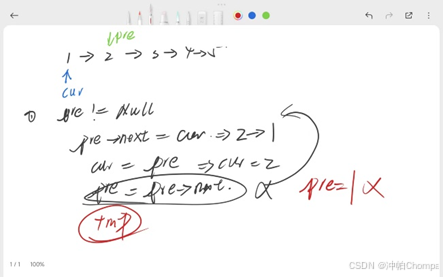 ↓pre
1 → 2 → 3 → 4 → 5
↑
cur
① pre != null
pre → next = cur ⇒ 2 → 1
cur = pre ⇒ cur = 2
pre = pre → next. × pre = 1 ×
tmp
1 / 1 100%
CSDN @冲帕Chompa